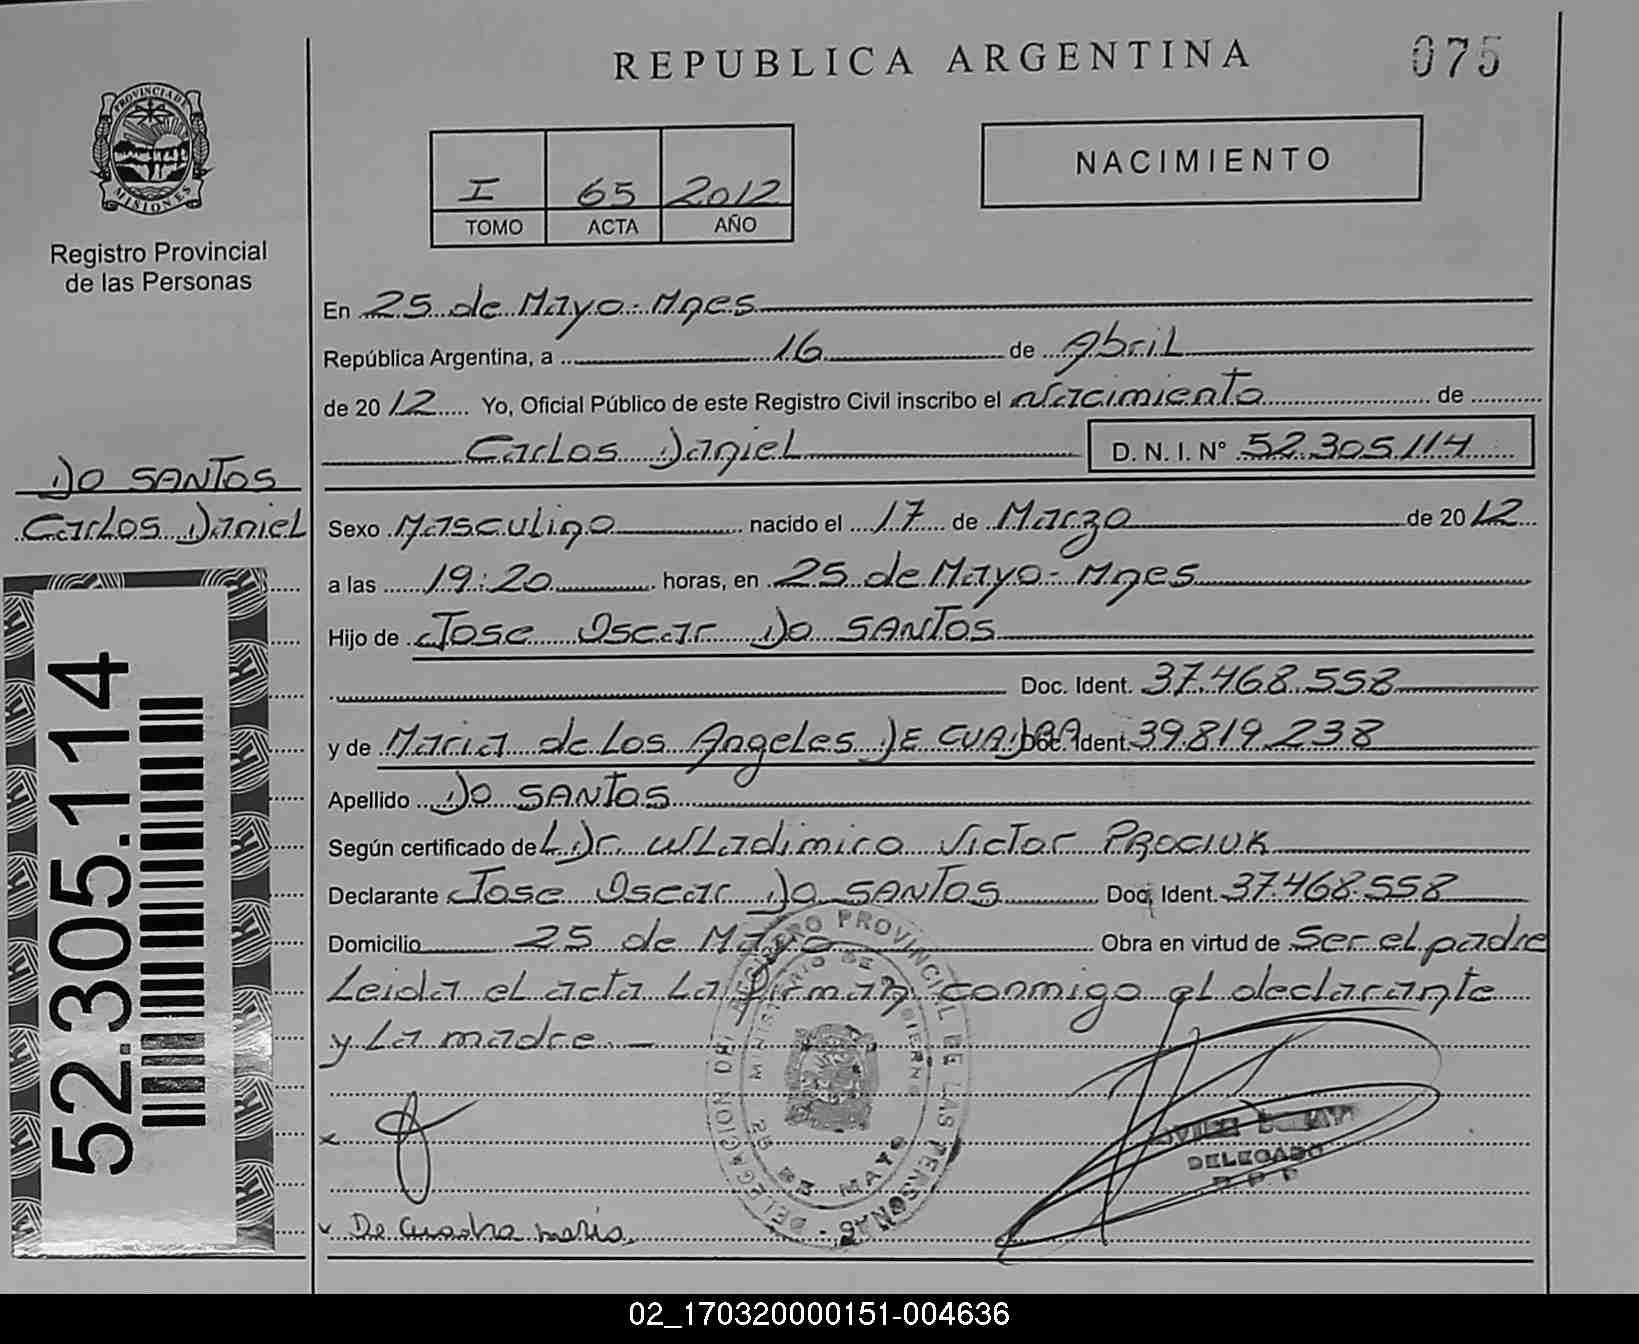 REPUBLICA ARGENTINA
075
PROVINCIA DE MISIONES
Registro Provincial
de las Personas
I 65 2012
TOMO ACTA AÑO
NACIMIENTO
En 25 de Mayo - Mnes
República Argentina, a 16 de Abril
de 2012 Yo, Oficial Público de este Registro Civil inscribo el Nacimiento de
Carlos Daniel D. N. I. N° 52.305.114
DO SANTOS
Carlos Daniel
Sexo Masculino nacido el 17 de Marzo de 2012
a las 19:20 horas, en 25 de Mayo - Mnes
Hijo de Jose Oscar DO SANTOS
Doc. Ident. 37.468.558
y de Maria de Los Angeles DE CUADRA Doc. Ident. 39.819.238
Apellido DO SANTOS
Según certificado de L Dr. Wladimiro Victor PROCIUK
Declarante Jose Oscar DO SANTOS Doc. Ident. 37.468.558
Domicilio 25 de Mayo Obra en virtud de Ser el padre
Leida el acta La firman conmigo el declarante
y La madre. -
52.305.114
DELEGACION DEL REGISTRO PROVINCIAL DE LAS PERSONAS -
MINISTERIO DE GOBIERNO
25 DE MAYO
DELEGADO
x
x De Cuadra maria
02_170320000151-004636